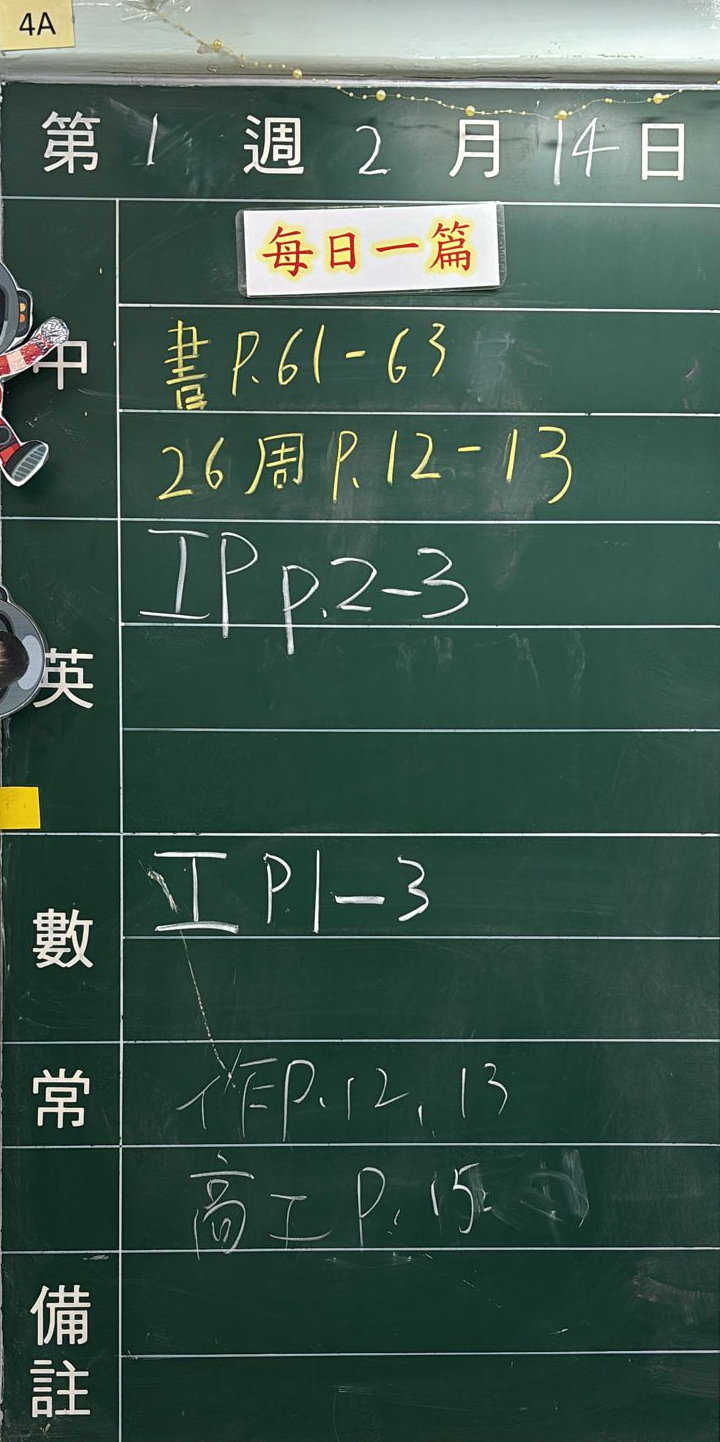 4A
第 1 週 2 月 14 日
每日一篇
中
書 P.61-63
26周 P.12-13
英
IP p.2-3
數
工 P.1-3
常
作P.12, 13
高工 P. 15
備註